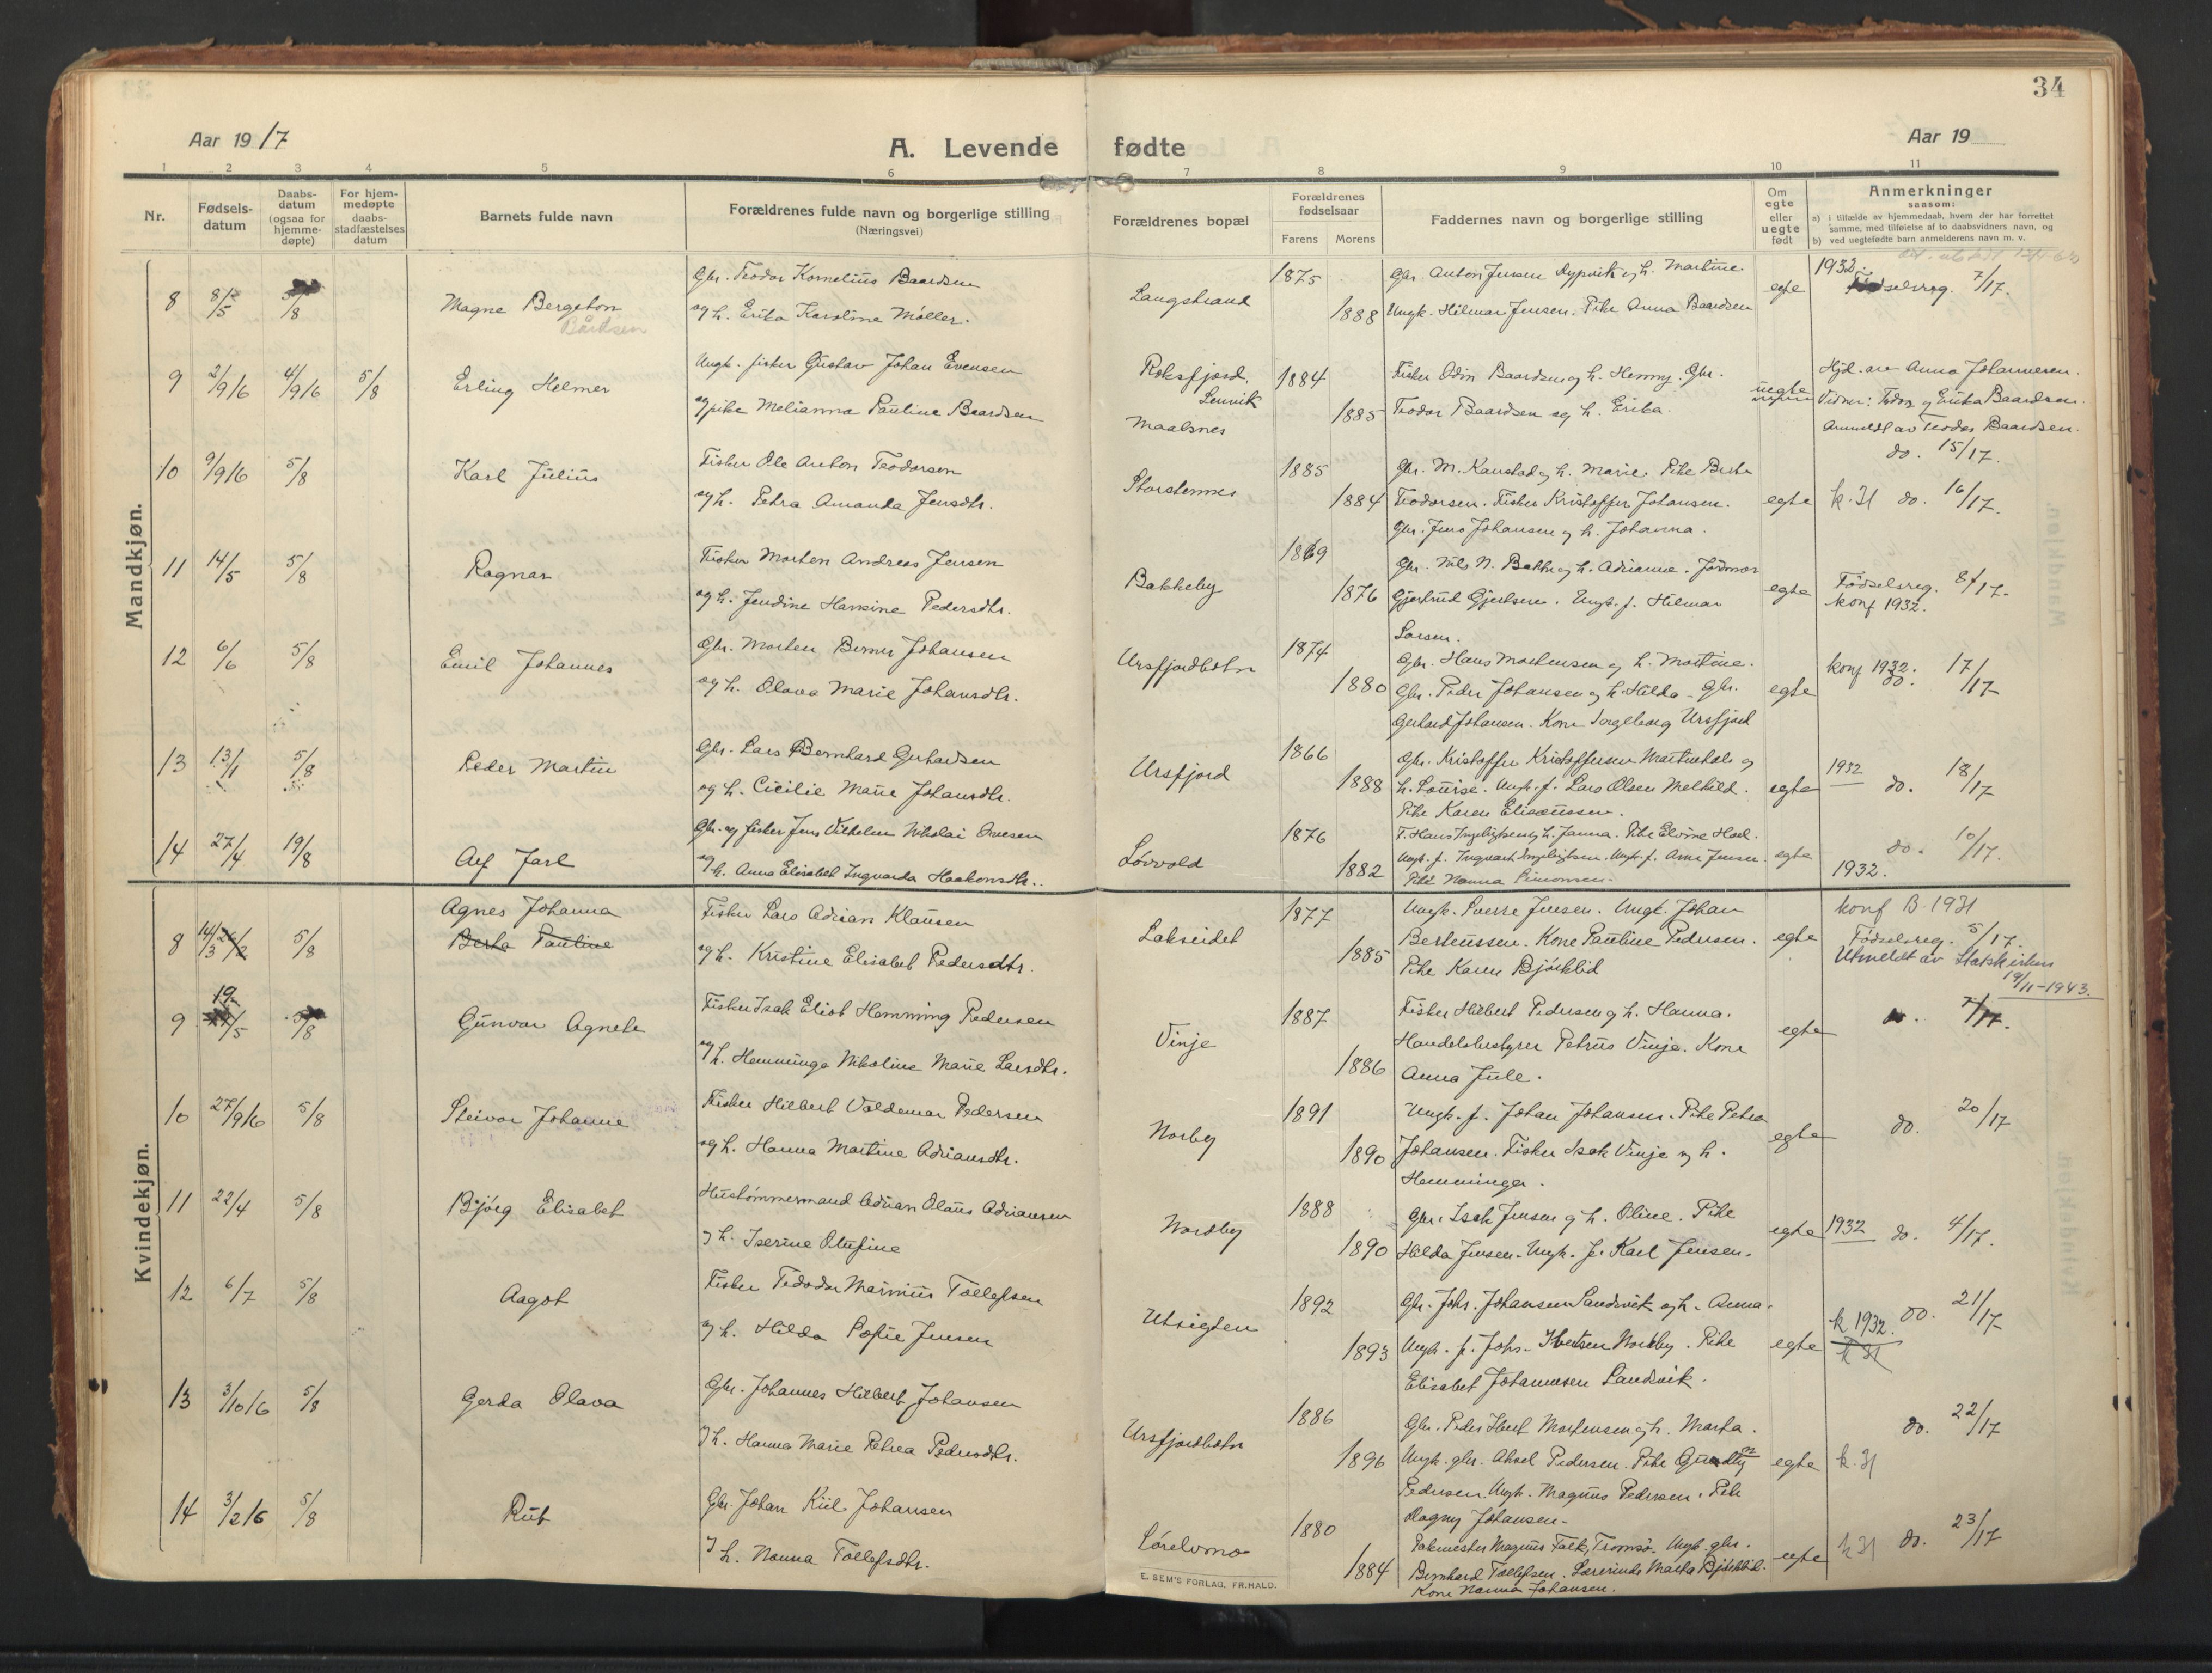 34
Aar 1917
A. Levende fødte
Aar 19
1 2 3 4 5 6 7 8 9 10 11
Nr.
Fødsels-
datum
Daabs-
datum
(ogsaa for
hjemme-
døpte)
For hjem-
medøpte
daabs-
stadfæstelses
datum
Barnets fulde navn
Forældrenes fulde navn og borgerlige stilling
(Næringsvei)
Forældrenes bopæl
Forældrenes
fødselsaar
Farens Morens
Faddernes navn og borgerlige stilling
Om
egte
eller
uegte
født
Anmerkninger
saasom:
a) i tilfælde av hjemmedaab, hvem der har forrettet
samme, med tilføielse af to daabsvidners navn, og
b) ved uegtefødte barn anmelderens navn m. v.
Mandkjøn.
8 8/5 5/8 Magne Bergeton
Bårdsen
Gbr. Teodor Kornelius Baardsen
og h. Erika Karoline Møller.
Langstrand 1875 1888
Gbr. Anton Jensen Nypvik og h. Martine.
Ungk. Hilmar Jensen. Pike Anna Baardsen
egte 1932. Fødselsreg. 7/17.
9 2/9 16 4/9 16 5/8 Erling Helmer
Ungk. fisker Gustav Johan Evensen
og pike Melianna Pauline Baardsen
Roksfjord, Lenvik
Maalsnes
1884 1885
Fisker Odin Baardsen og h. Henny. Gbr.
Teodor Baardsen og h. Erika.
uegte
Hjd. av Anna Johannesen.
Vidner: Teodor og Erika Baardsen.
Anmeldt av Teodor Baardsen.
do. 15/17.
10 9/9 16 5/8 Karl Julius
Fisker Ole Anton Teodorsen
og h. Petra Amanda Jensdtr.
Storstennes 1885 1884
Gbr. M. Kanstad og h. Marie. Pike Berte
Teodorsen. Fisker Kristoffer Johansen.
Gbr. Jens Johansen og h. Johanna.
egte k. 31 do. 16/17.
11 14/5 5/8 Ragnar
Fisker Morten Andreas Jensen
og h. Jendine Hansine Pedersdtr.
Bakkeby 1869 1876
Gbr. Nils N. Bakke og h. Adrianne. Jordmor
Gjertrud Gjertsen. Ungk. f. Hilmar
Larsen.
egte Fødselsreg. 8/17.
konf 1932.
12 6/6 5/8 Emil Johannes
Gbr. Morten Berner Johansen
og h. Olava Marie Johansdtr.
Ursfjordbotn 1874 1880
Gbr. Hans Mortensen og h. Martine.
Gbr. Peder Johansen og h. Hilda. Gbr.
Gerhard Johansen. Kone Ingeborg Ursfjord
egte konf 1932. do. 17/17
13 13/1 5/8 Peder Martin
Gbr. Lars Bernhard Gerhardsen
og h. Cicilie Marie Johansdtr.
Ursfjord 1866 1888
Gbr. Kristoffer Kristoffersen Martinhals og
h. Lourse. Ungk. f. Lars Olsen Melhild.
Pike Karen Eliseussen.
egte 1932 do. 18/17
14 27/4 19/8 Alf Jarl
Gbr. og fisker Jens Vilhelm Nikolai Ovesen
og h. Anna Elisabet Ingvarda Haakonsdtr.
Løvvold 1876 1882
F. Hans Ingebrigtsen og h. Janna. Pike Elvine Hoel.
Ungk. f. Ingvart Ingebrigtsen. Ungk. f. Arne Jensen.
Pike Nanna Simonsen.
egte do. 10/17.
1932.
Kvindekjøn.
8 14/3 5/8 Agnes Johanna
Berta Pauline
Fisker Lars Adrian Klausen
og h. Kristine Elisabet Pedersdtr.
Lakseidet 1877 1885
Ungk. Sverre Jensen. Ungk. Johan
Berteussen. Kone Pauline Pedersen.
Pike Karen Bjørklid
egte konf B. 1931
Fødselsreg. 5/17.
Utmeldt av Statskirken
19/11-1943.
9 19/5 5/8 Gunvor Agnete
Fisker Isak Eliot Hemming Pedersen
og h. Hemminga Nikoline Marie Larsdtr.
Vinje 1887 1886
Fisker Hilbert Pedersen og h. Hanna.
Handelsbestyrer Petrus Vinje. Kone
Anna Jule.
egte do. 7/17.
10 27/9 16 5/8 Steivor Johanne
Fisker Hilbert Valdemar Pedersen
og h. Hanna Martine Adriansdtr.
Norby 1891 1890
Ungk. f. Johan Johansen. Pike Petra
Johansen. Fisker Isak Vinje og h.
Hemminga.
egte do. 20/17
11 22/4 5/8 Bjørg Elisabet
Hustømmermand Adrian Olaus Adriansen
og h. Iserine Olufine
Nordby 1888 1890
Gbr. Isak Jensen og h. Oline. Pike
Hilda Jensen. Ungk. f. Karl Jensen.
egte 1932 do. 4/17.
12 6/7 5/8 Aagot
Fisker Teodor Marinius Tollefsen
og h. Hilda Sofie Jensen
Utsigten 1892 1893
Gbr. Johs. Johansen Sandvik og h. Anna.
Ungk. f. Johs. Ibertsen Nordby. Pike
Elisabet Johannesen Sandvik.
egte k. 1932. do. 21/17
k 31
13 3/10 16 5/8 Gerda Olava
Gbr. Johannes Hilbert Johansen
og h. Hanna Marie Petrea Pedersdtr.
Ursfjordbotn 1886 1896
Gbr. Peder Ibert Mortensen og h. Marta.
Ungk. gbr. Aksel Pedersen. Pike
Pedersen. Ungk. Magnus Pedersen. Pike
Dagny Johansen.
egte k. 31 do. 22/17
14 3/2 16 5/8 Rut
Gbr. Johan Kiil Johansen
og h. Nanna Tollefsdtr.
Sørelvmo 1880 1884
Magnus Falk, Tromsø. Ungk. gbr.
Bernhard Tollefsen. Lærerinde Marta Bjørklid.
Kone Nanna Johansen.
egte k 31 do. 23/17
E. SEM'S FORLAG, FR.HALD.